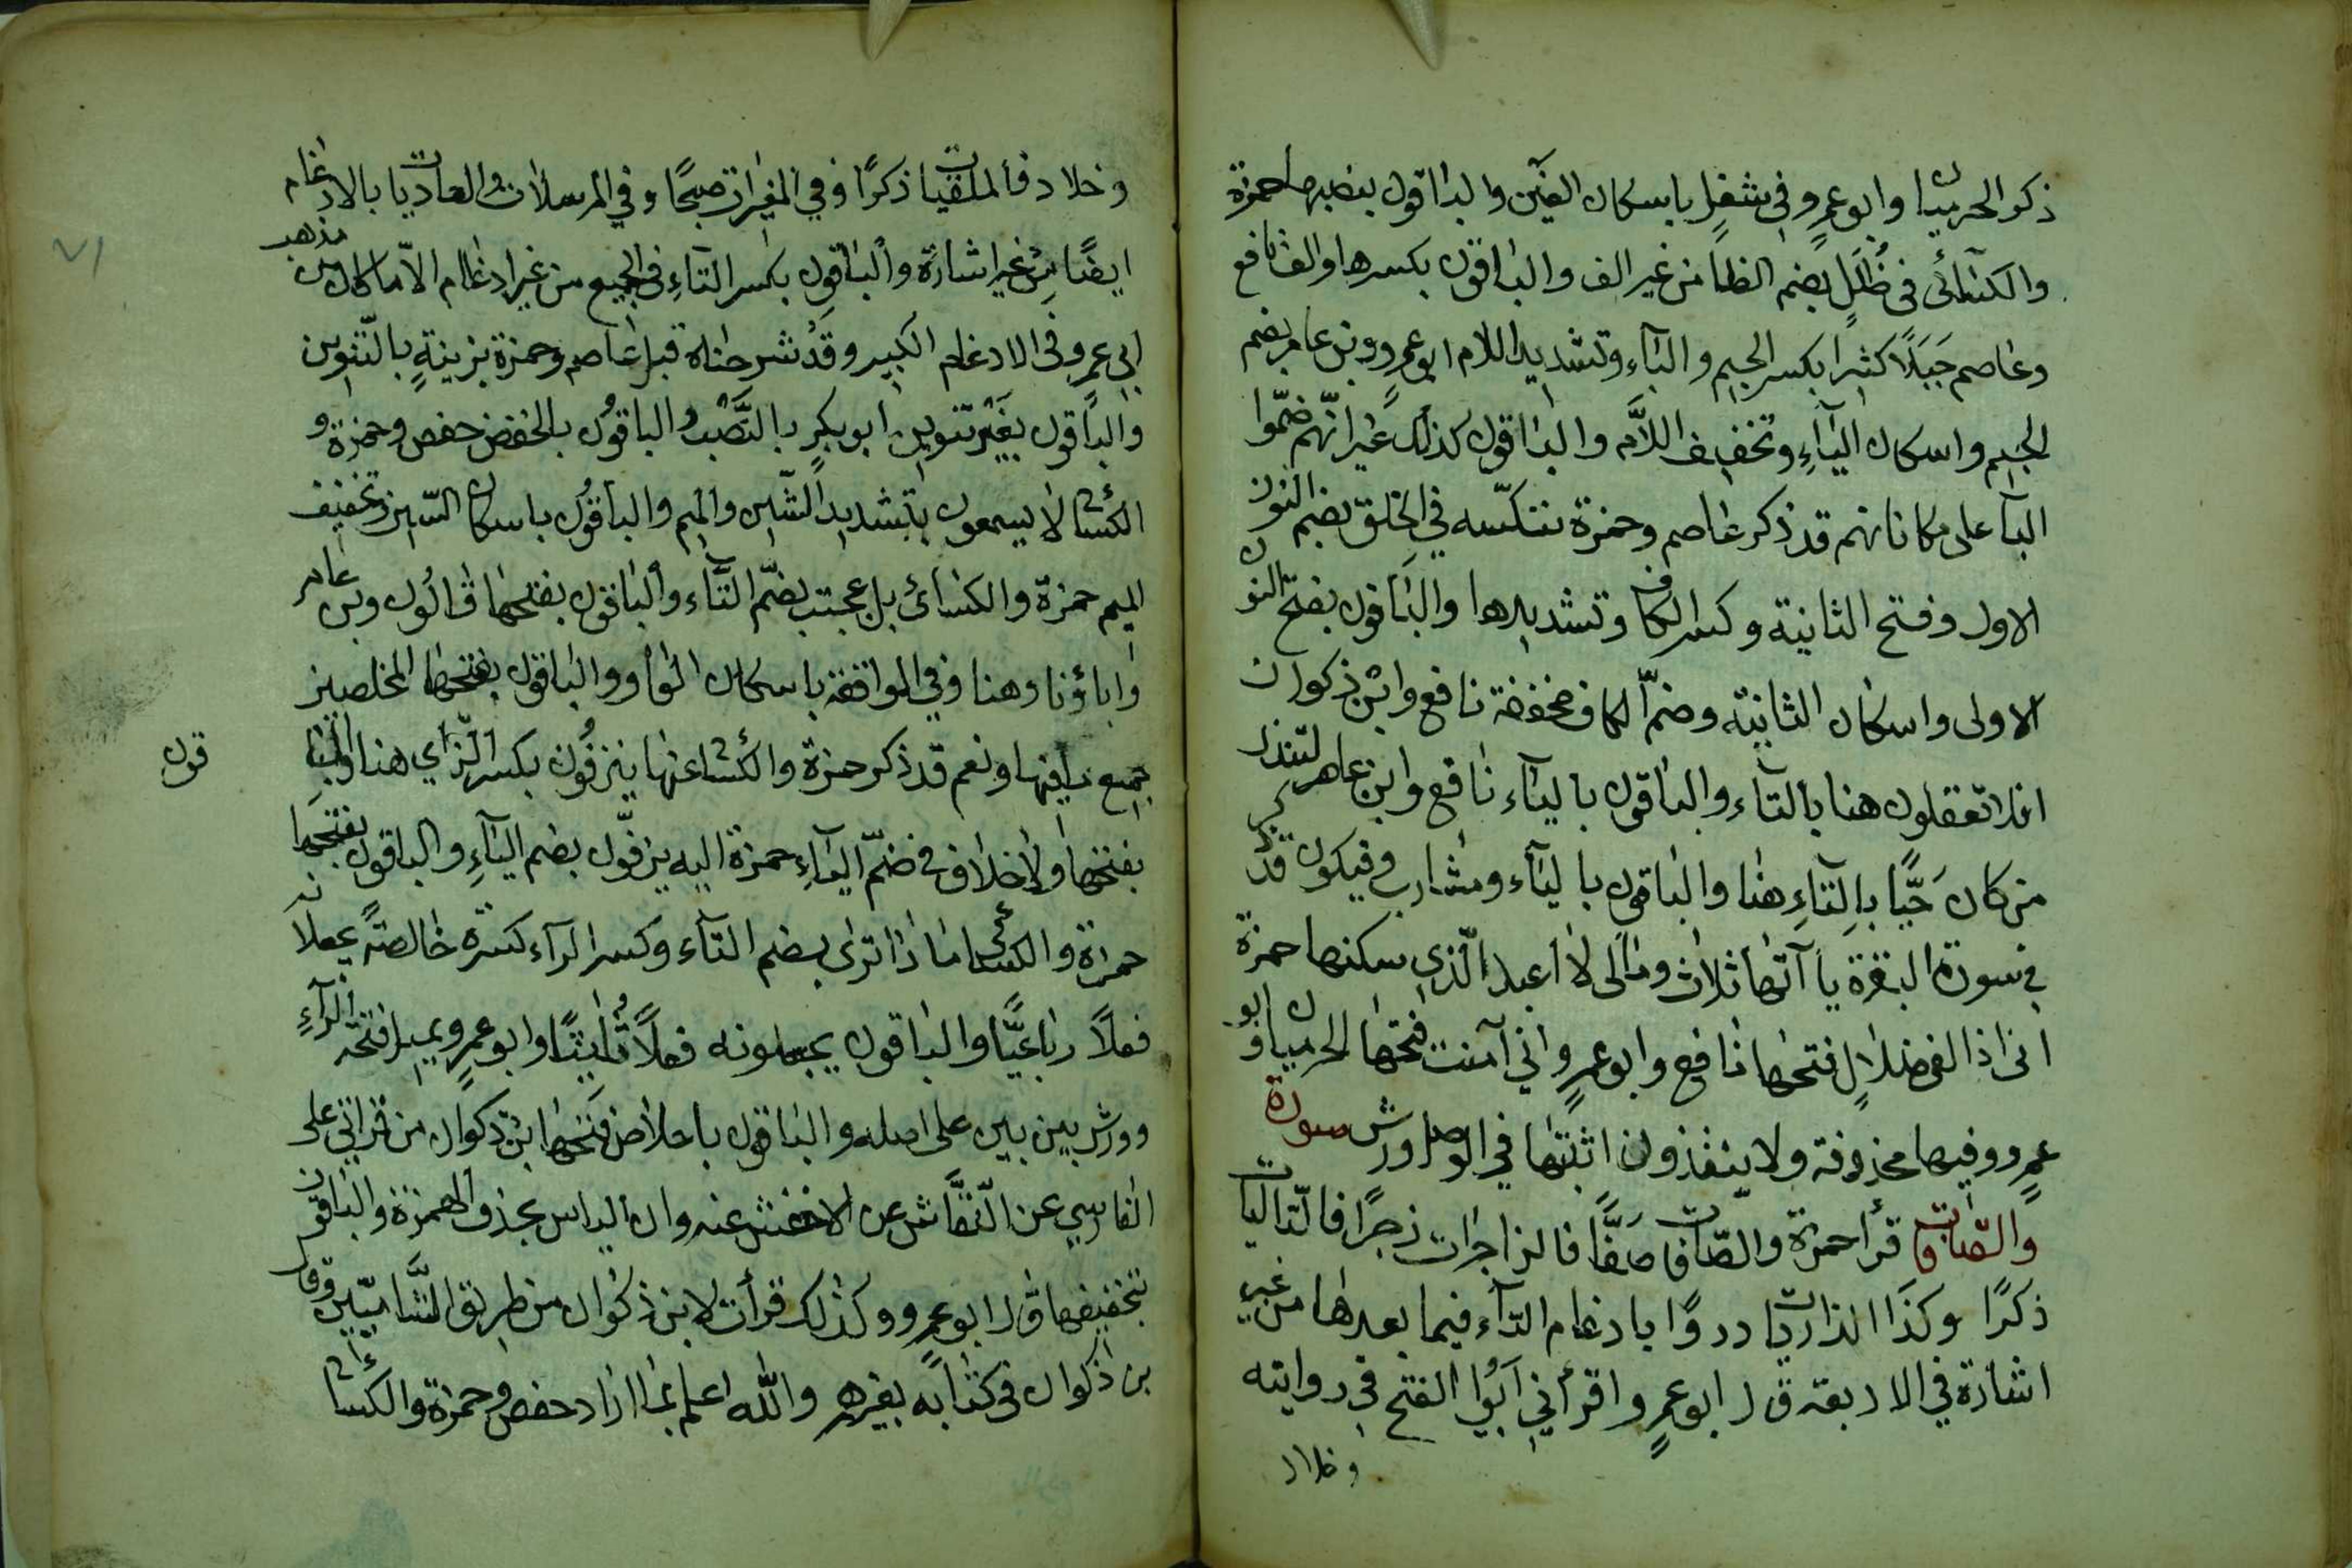 ذكر الحرميان وابو عمرو في شغل باسكان الغين والباقون بضمها حمزة
والكسائى فى ظلل بضم الظا من غير الف والباقون بكسرها والف نافع
وعاصم جبلا كثيرا بكسر الجيم والباء وتشديد اللام ابو عمرو وبن عامر بضم
الجيم واسكان الباء وتخفيف اللام والباقون كذلك غير انهم ضموا
البآ على مكاناتهم قد ذكر عاصم وحمزة ننكسه في الخلق بضم النون
الاول وفتح الثانية وكسر الكاف وتشديدها والباقون بفتح النون
الاولى واسكان الثانية وضم الكاف مخففة نافع وابن ذكوان
افلا تعقلون هنا بالتاء والباقون بالياء نافع وابن عامر لتنذر
من كان حيا بالتاء هنا والباقون بالياء ومشارب وفيكون قد ذكر
في سورة البقرة ياآتها ثلاث ومالى لا اعبد الذي سكنها حمزة
انى اذا لفى ضلال فتحها نافع وابو عمرو اني آمنت فتحها الحرميان وابو
عمرو وفيها محذوفة ولا ينقذون اثبتها في الوصل ورش سورة
والصافات قرأ حمزة والصافات صفا فالزاجرات زجرا فالتاليات
ذكرا وكذا الذاريات ذروا بادغام التاء فيما بعدها من غير
اشارة في الاربعة قال ابو عمرو اقرأني ابو الفتح في روايته
وخلاد
وخلاد فالملقيات ذكرا وفي المغيرات صبحا وفي المرسلات والعاديات بالادغام
ايضا من غير اشارة والباقون بكسر التاء فى الجميع من غير ادغام الا ما كان من مذهب
ابي عمرو فى الادغام الكبير وقد شرحناه قبل عاصم وحمزة بزينة بالتنوين
والباقون بغير تنوين ابو بكر بالنصب والباقون بالخفض حفص وحمزة و
الكسائى لا يسمعون بتشديد السين والميم والباقون باسكان السين وتخفيف
الميم حمزة والكسائى بل عجبت بضم التاء والباقون بفتحها قالون وبن عامر
واباؤنا وهنا وفي الواقعة باسكان الواو والباقون بفتحها المخلصين
جميع ما فيها ونعم قد ذكر حمزة والكسائى عنها ينزفون بكسر الزاي هنا والباقون
قون
بفتحها ولا خلاف في ضم الياء حمزة اليه يزفون بضم الياء والباقون بفتحها
حمزة والكسائى ماذا ترى بضم التاء وكسر الراء كسرة خالصة يجعلانه
فعلا رباعيا والباقون يجعلونه فعلا ثلاثيا وابو عمرو يميل فتحة الراء
وورش بين بين على اصله والباقون باخلاص فتحها ابن ذكوان من قراتي على
الفارسي عن النقاش عن الاخفش عنه وان الياس بحذف الهمزة والباقون
بتخفيفها قال ابو عمرو وكذلك قرأت لابن ذكوان من طريق الشاميين وقال
بن ذكوان فى كتابه بغير همز والله اعلم بما اراد حفص وحمزة والكسائى
٧١